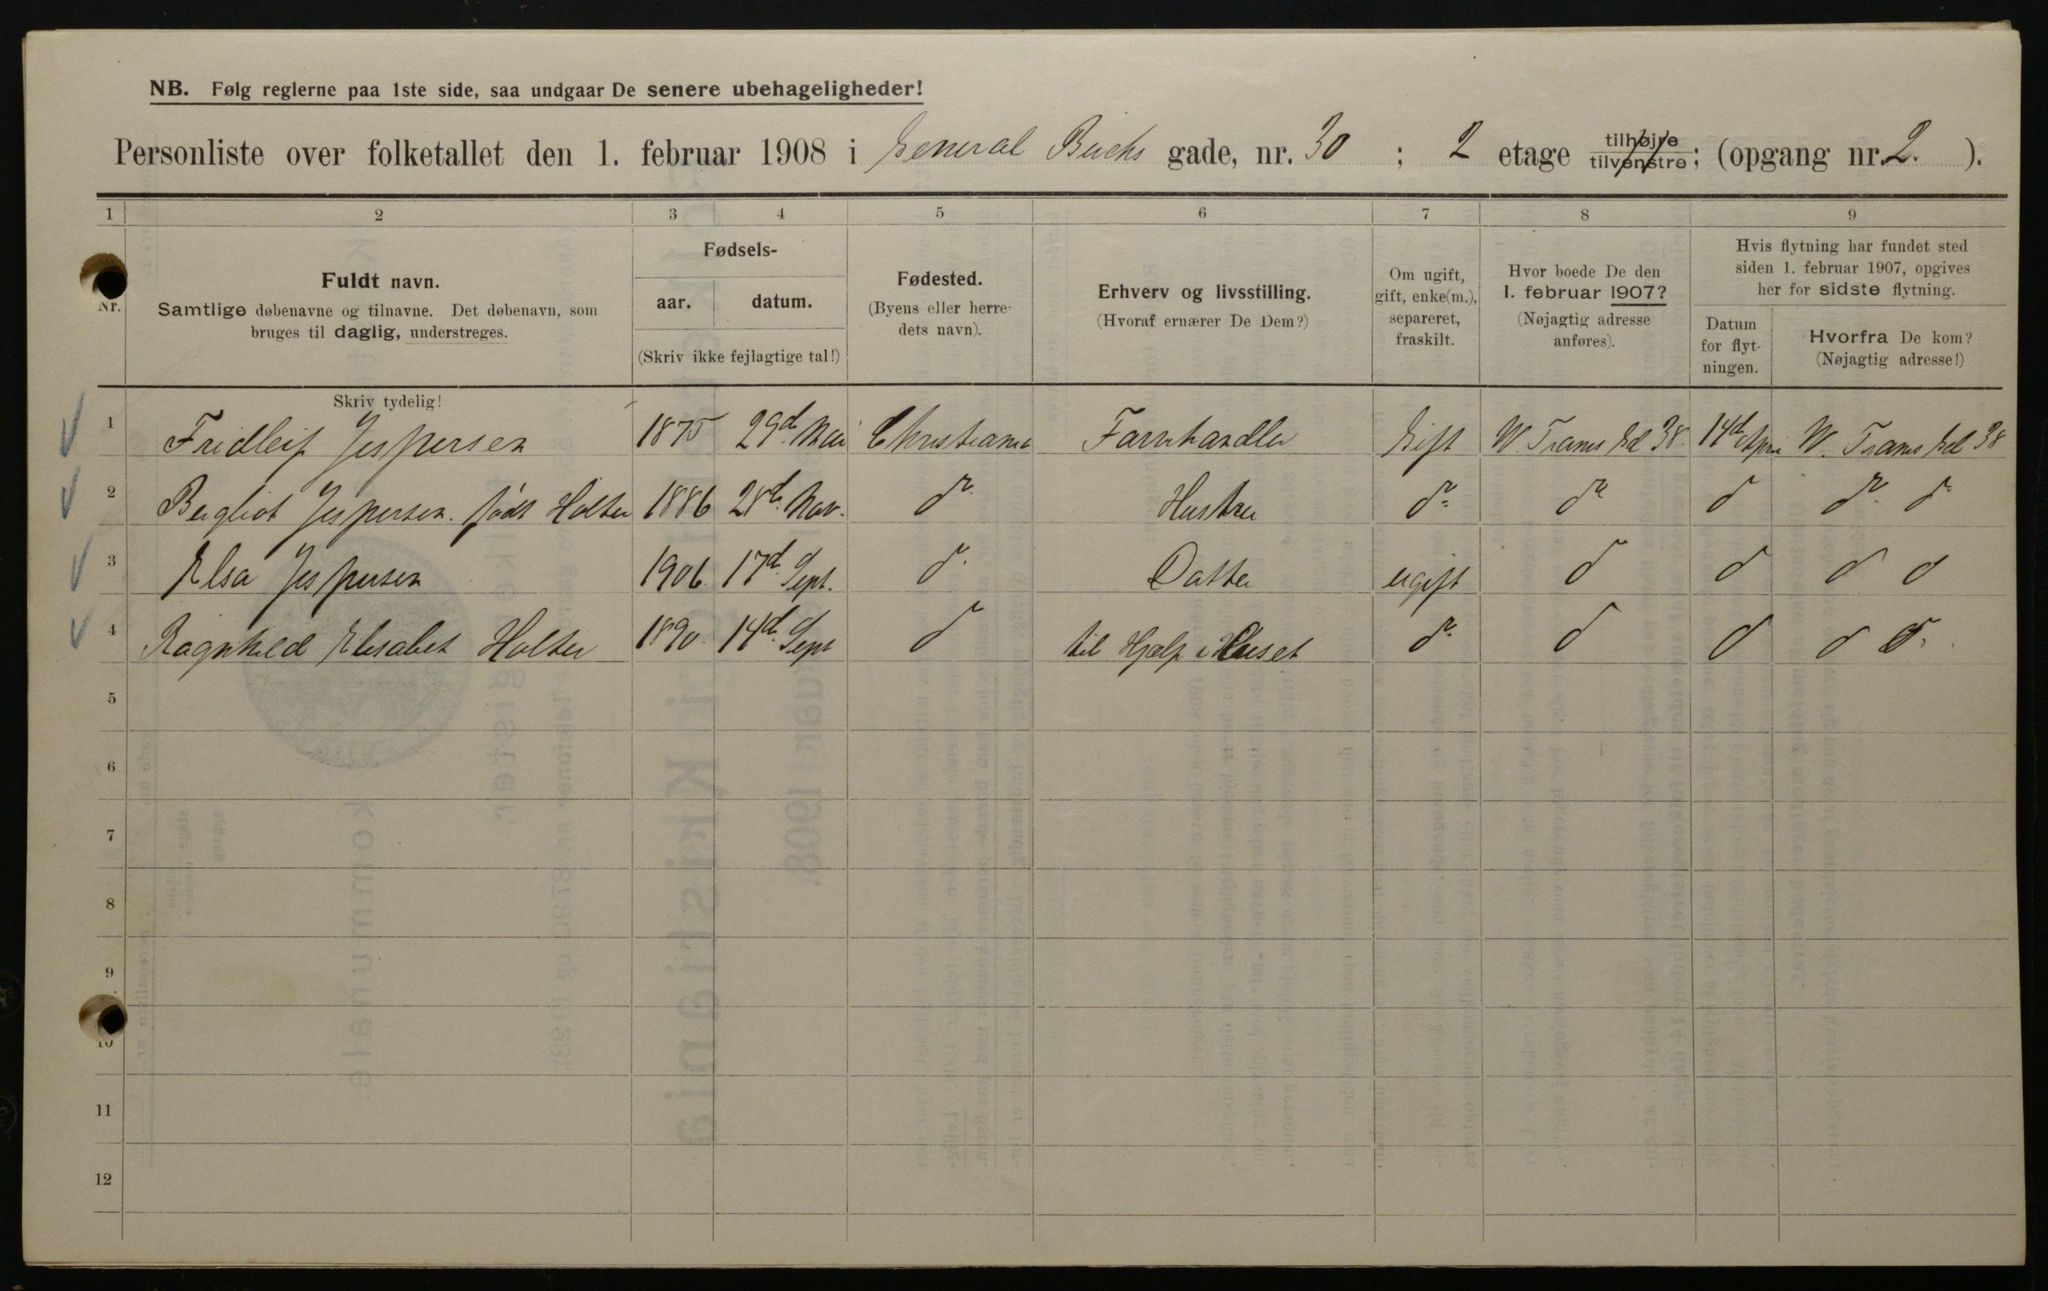 NB. Følg reglerne paa 1ste side, saa undgaar De senere ubehageligheder!
Personliste over folketallet den 1. februar 1908 i General Birchs gade, nr. 30 ; 2 etage tilhøjre tilvenstre ; (opgang nr. 2. ).
1 2 3 4 5 6 7 8 9
Nr.
Fuldt navn.
Samtlige døbenavne og tilnavne. Det døbenavn, som
bruges til daglig, understreges.
Skriv tydelig!
Fødsels-
aar. datum.
(Skriv ikke fejlagtige tal!)
Fødested.
(Byens eller herre-
dets navn).
Erhverv og livsstilling.
(Hvoraf ernærer De Dem?)
Om ugift,
gift, enke(m.),
separeret,
fraskilt.
Hvor boede De den
1. februar 1907?
(Nøjagtig adresse
anføres).
Hvis flytning har fundet sted
siden 1. februar 1907, opgives
her for sidste flytning.
Datum
for flyt-
ningen.
Hvorfra De kom?
(Nøjagtig adresse!)
1 Fridleif Jespersen 1875 29d. Mai Christiania Farvehandler Gift W. Trams Gd 38. 14d April W. Trams Gd 38
2 Bergliot Jespersen. født Holter 1886 28d. Nov. do. Hustru do. do d do. d
3 Elsa Jespersen 1906. 17d. Sept. d. Datter ugift d d d d
4 Ragnhild Elisabet Holter 1890. 14d. Sept d til Hjælp i Huset do. d d d d.
5
6
7
8
9
10
11
12